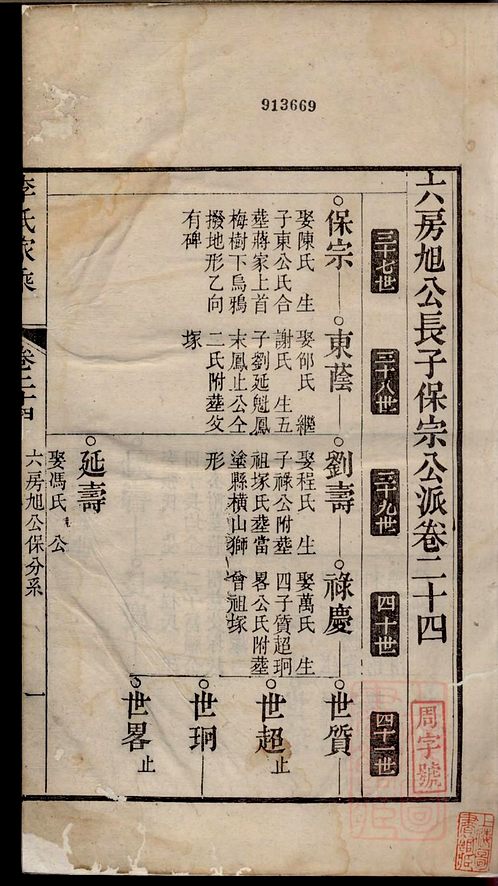 913669
六房旭公長子保宗公派卷二十四
周字號
三十七世
三十八世
三十九世
四十世
四十一世
保宗
娶陳氏 生
子東公氏合
塟蔣家上首
梅樹下烏鴉
撥地形乙向
有碑
東蔭
娶邰氏 繼
謝氏 生五
子劉延魁鳳
末鳳止公仝
二氏附塟父
塚
劉壽
娶程氏 生
子祿公附塟
祖塚氏塟當
塗縣橫山獅
形
祿慶
娶萬氏 生
四子質超珂
畧公氏附塟
曾祖塚
世質
世超
止
世珂
世畧
止
延壽
娶馮氏 公
六房旭公保分系
一
氏家乘
卷二十四